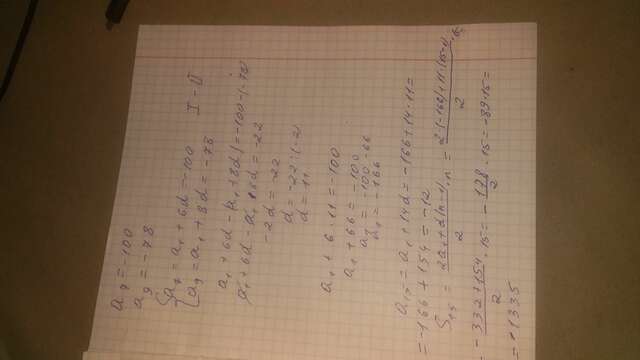 a₇ = -100
a₉ = -78
{ a₇ = a₁ + 6d = -100
{ a₉ = a₁ + 8d = -78 I - II
a₁ + 6d - (a₁ + 8d) = -100 - (-78)
a₁ + 6d - a₁ - 8d = -22
-2d = -22
d = -22 : (-2)
d = 11
a₁ + 6 · 11 = -100
a₁ + 66 = -100
a₁ = -100 - 66
a₁ = -166
a₁₅ = a₁ + 14d = -166 + 14 · 11 =
= -166 + 154 = -12
S₁₅ = (2a₁ + d(n-1))/2 · n = (2·(-166) + 11·(15-1))/2 · 15 =
= (-332 + 154)/2 · 15 = -178/2 · 15 = -89 · 15 =
= -1335